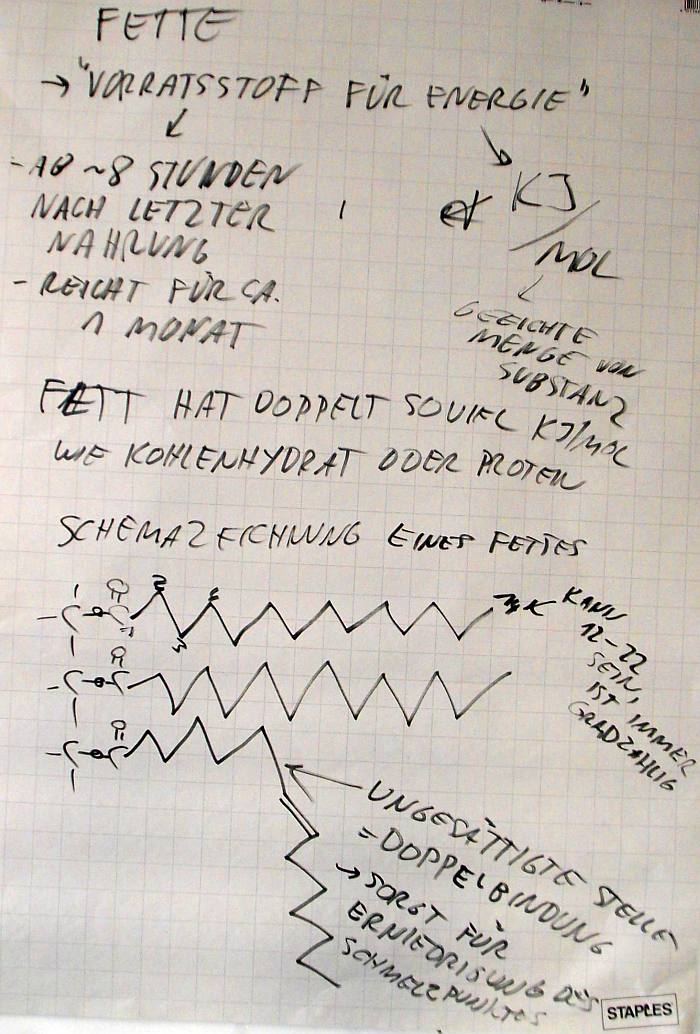 FETTE
→ "VORRATSSTOFF FÜR ENERGIE"
- AB ~8 STUNDEN
NACH LETZTER
NAHRUNG
- REICHT FÜR CA.
1 MONAT
KJ/MOL
GEEICHTE
MENGE VON
SUBSTANZ
FETT HAT DOPPELT SOVIEL KJ/MOL
WIE KOHLENHYDRAT ODER PROTEIN
SCHEMAZEICHNUNG EINES FETTES
KANN
12-22
SEIN,
IST IMMER
GRADZAHLIG
UNGESÄTTIGTE STELLE
= DOPPELBINDUNG
→ SORGT FÜR
ERNIEDRIGUNG DES
SCHMELZPUNKTES
STAPLES